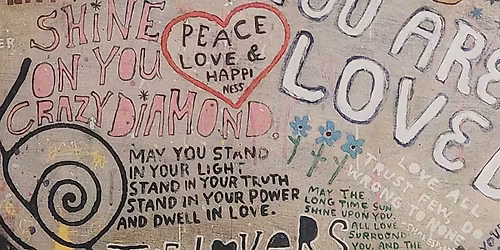 SHINE
ON YOU
CRAZY DIAMOND.
PEACE
LOVE &
HAPPI
NESS
YOU ARE
LOVED
MAY YOU STAND
IN YOUR LIGHT
STAND IN YOUR TRUTH
STAND IN YOUR POWER
AND DWELL IN LOVE.
MAY THE
LONG TIME SUN
SHINE UPON YOU.
ALL LOVE
SURROUND
YOU AND THE
LOVE ALL
TRUST FEW DO
WRONG TO NONE